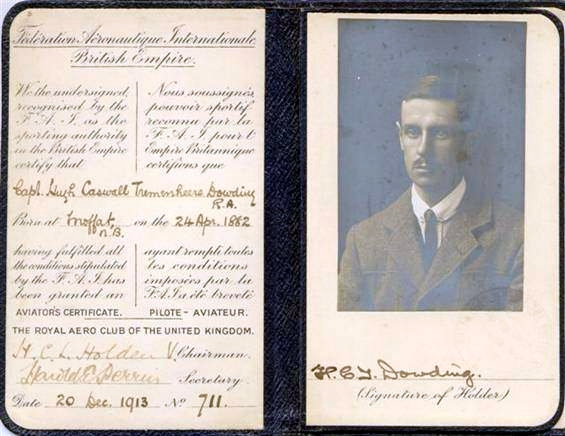 Fédération Aéronautique Internationale
British Empire.
We the undersigned
recognised by the
F. A. I. as the
sporting authority
in the British Empire
certify that
Nous soussignés
pouvoir sportif
reconnu par la
F. A. I. pour l'
Empire Britannique
certifions que
Capt. Hugh Caswall Tremenheere Dowding
R.A.
Born at Moffat, on the 24 Apr. 1882
N.B.
having fulfilled all
the conditions stipulated
by the F. A. I. has
been granted an
AVIATOR'S CERTIFICATE.
ayant rempli toutes
les conditions
imposées par la
F.A.I. a été breveté
PILOTE - AVIATEUR.
THE ROYAL AERO CLUB OF THE UNITED KINGDOM.
H. C. L. Holden V. Chairman.
Harold E Perrin Secretary.
Date 20 Dec. 1913 Nº 711.
H. C. T. Dowding.
(Signature of Holder)